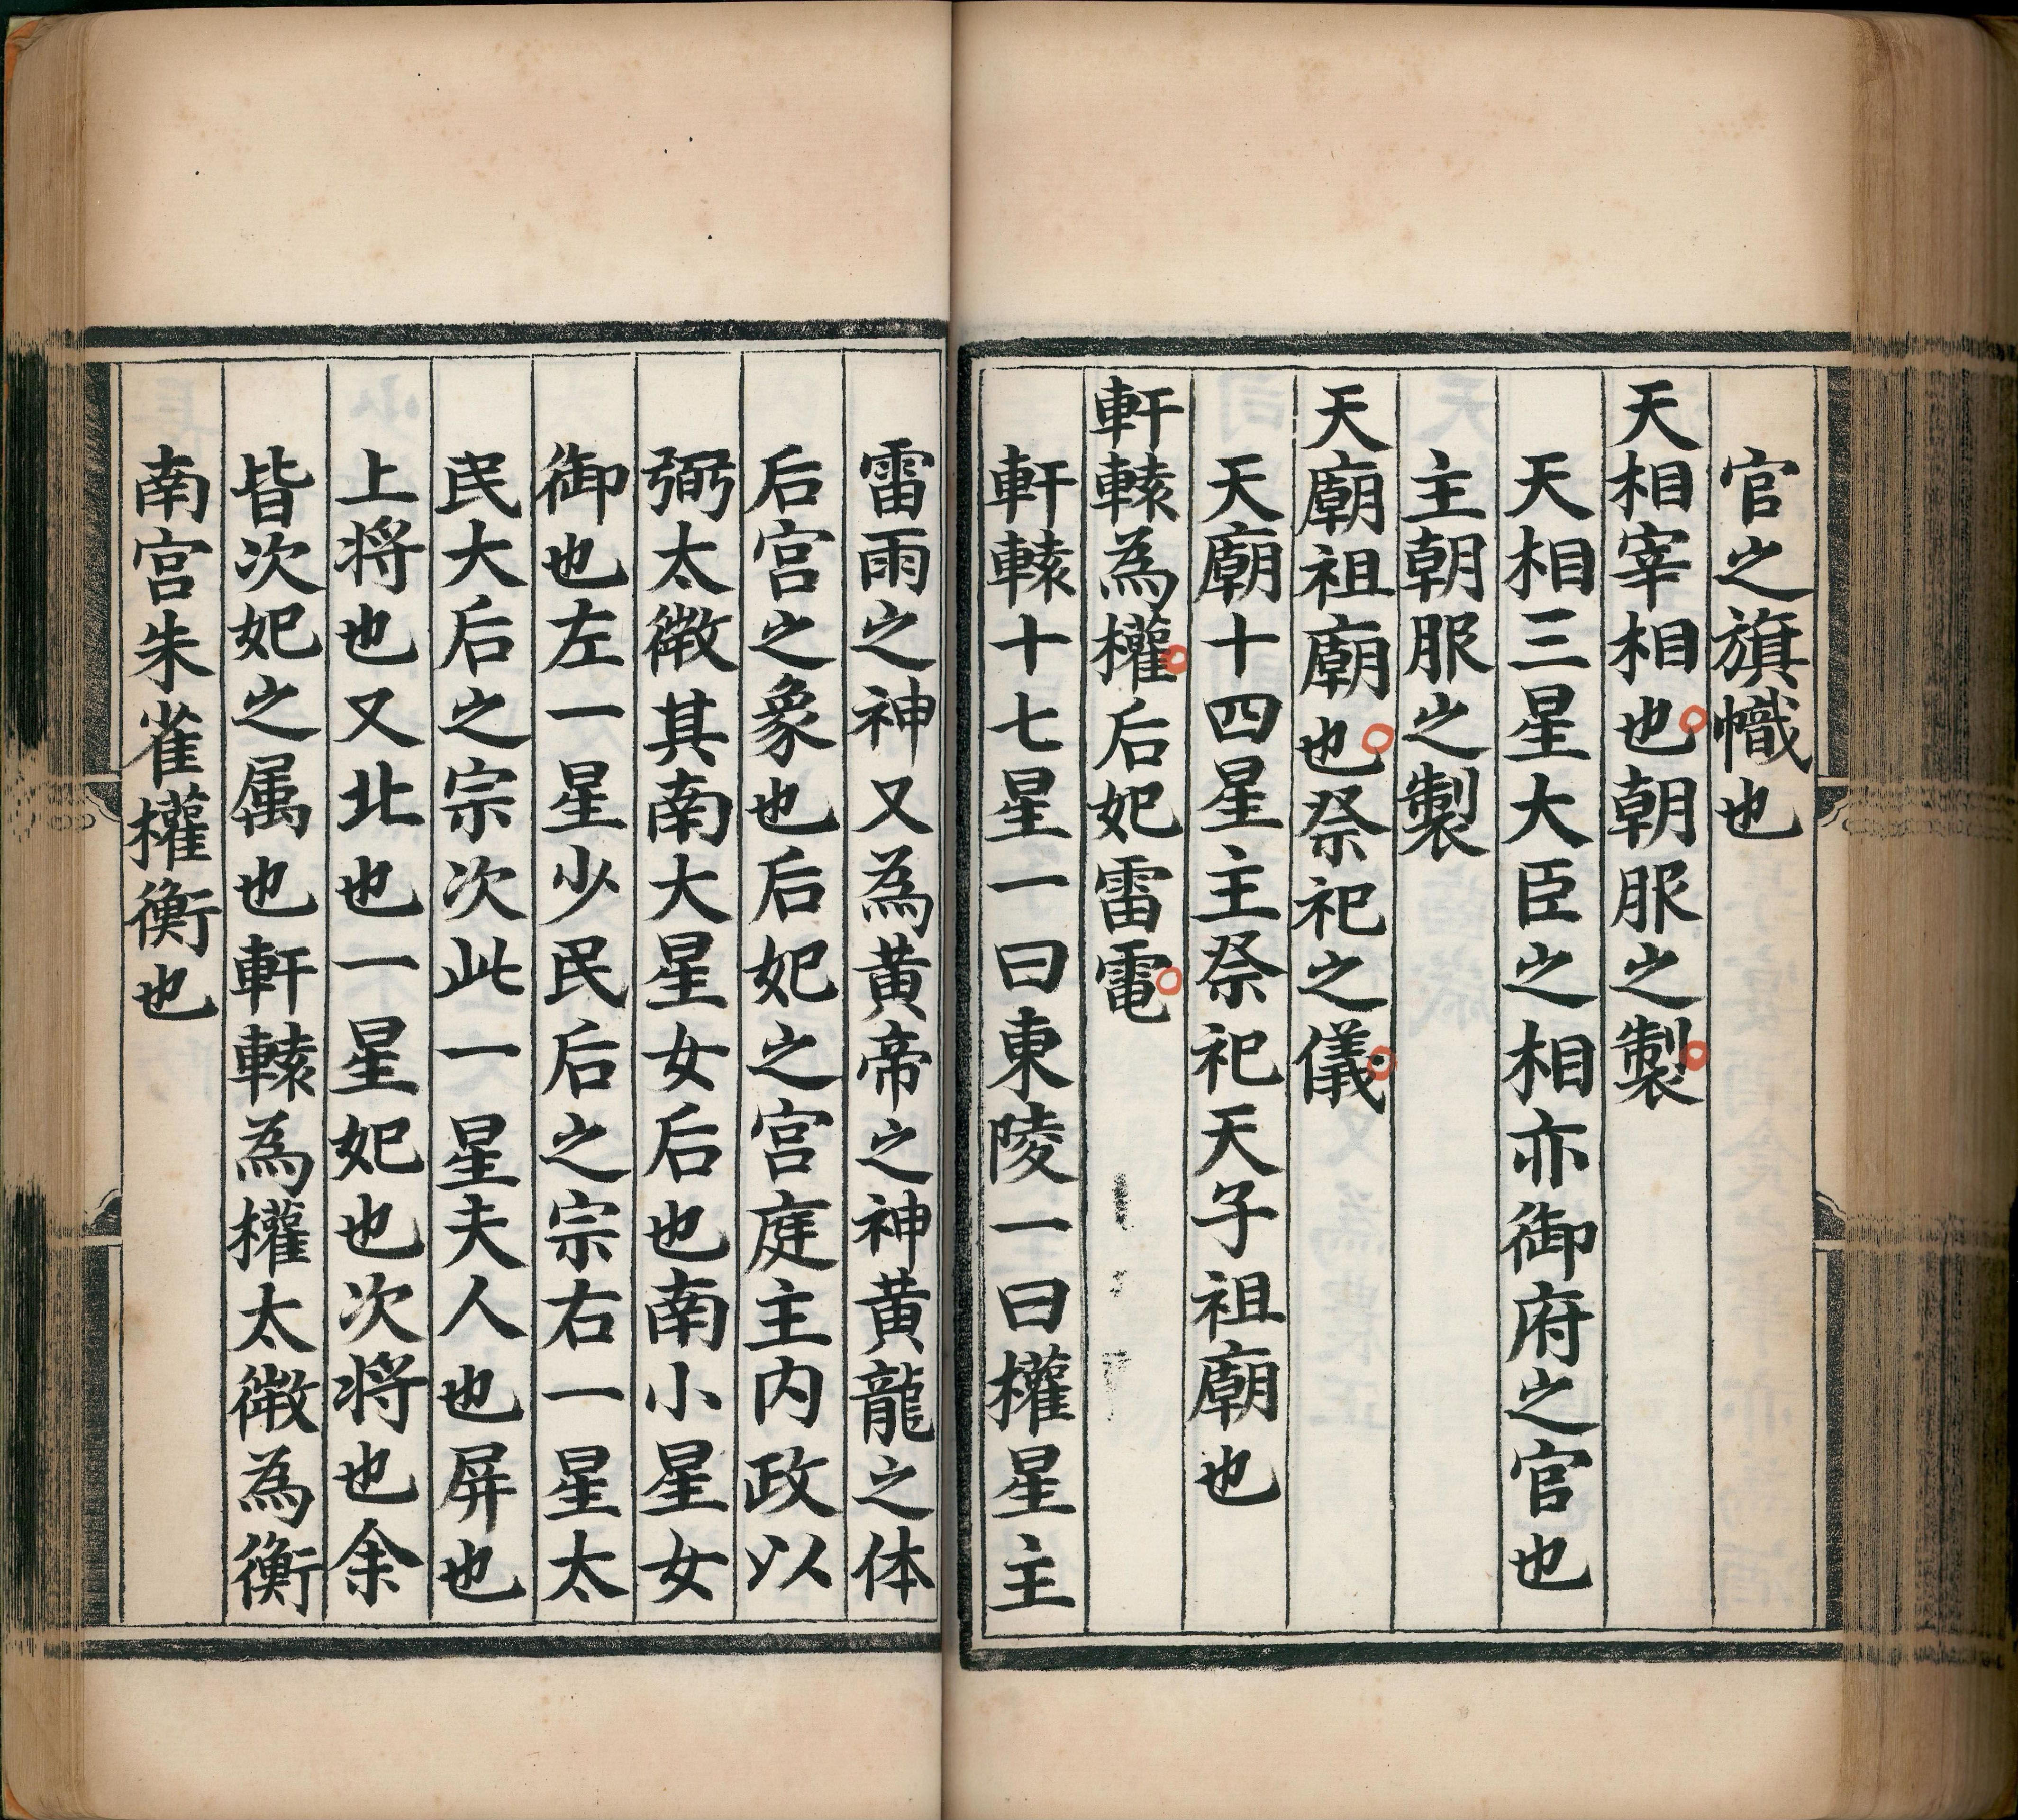 官之旗幟也
天相宰相也朝服之製
天相三星大臣之相亦御府之官也
主朝服之製
天廟祖廟也祭祀之儀
天廟十四星主祭祀天子祖廟也
軒轅為權后妃雷電
軒轅十七星一曰東陵一曰權星主
雷雨之神又為黃帝之神黃龍之体
后宮之象也后妃之宮庭主内政以
弼太微其南大星女后也南小星女
御也左一星少民后之宗右一星太
民大后之宗次此一星夫人也屏也
上将也又北也一星妃也次将也余
皆次妃之属也軒轅為權太微為衡
南宮朱雀權衡也